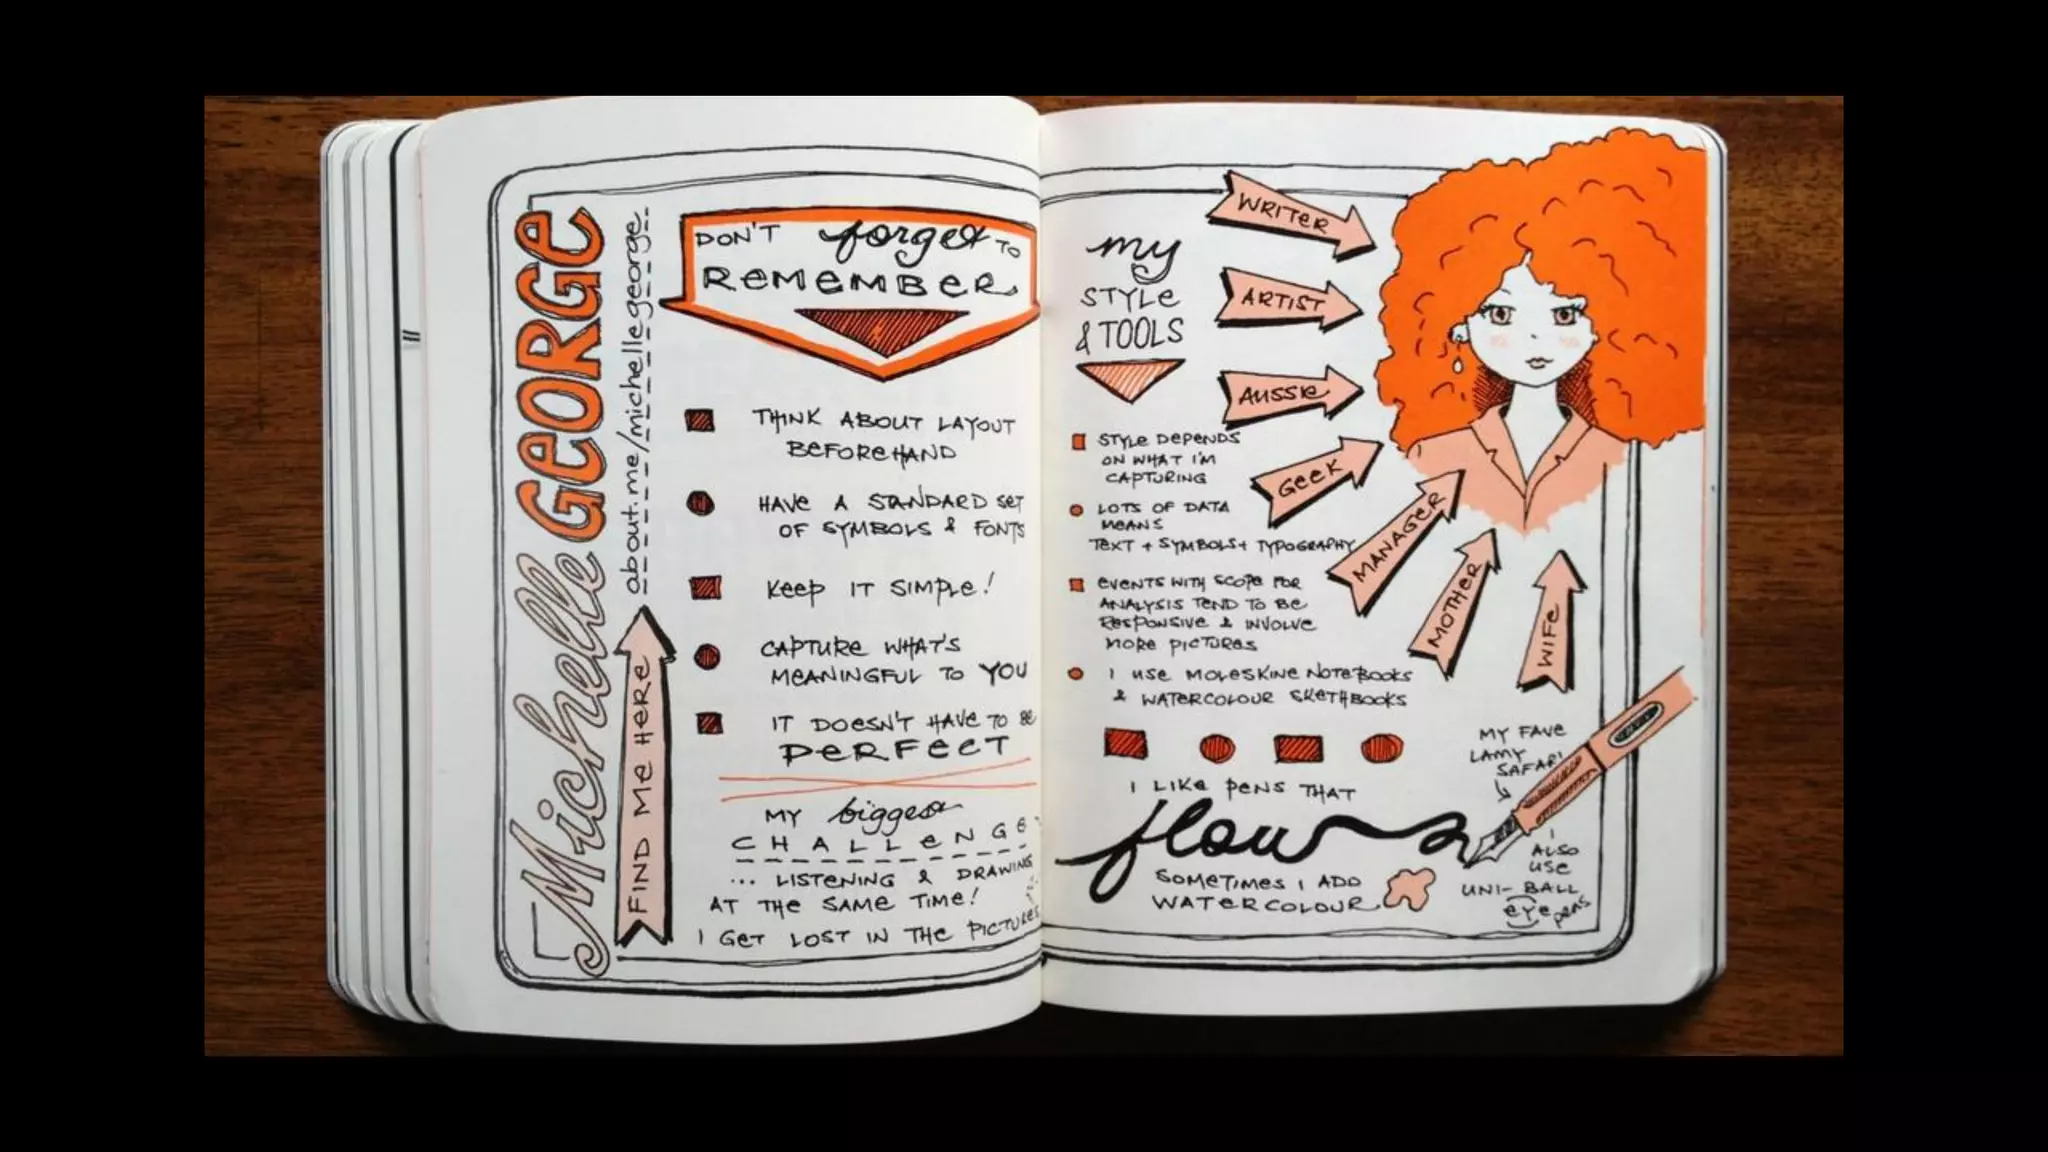 Michelle GEORGE
FIND ME HERE
about.me/michellegeorge
DON'T forget TO
REMEMBER
THINK ABOUT LAYOUT
BEFOREHAND
HAVE A STANDARD SET
OF SYMBOLS & FONTS
KEEP IT SIMPLE!
CAPTURE WHAT'S
MEANINGFUL TO YOU
IT DOESN'T HAVE TO BE
PERFECT
MY biggest
CHALLENGE
... LISTENING & DRAWING
AT THE SAME TIME!
I GET LOST IN THE PICTURES
my
STYLE
& TOOLS
STYLE DEPENDS
ON WHAT I'M
CAPTURING
LOTS OF DATA
MEANS
TEXT + SYMBOLS + TYPOGRAPHY
EVENTS WITH SCOPE FOR
ANALYSIS TEND TO BE
RESPONSIVE & INVOLVE
MORE PICTURES
I USE MOLESKINE NOTEBOOKS
& WATERCOLOUR SKETHBOOKS
I LIKE PENS THAT
flow
SOMETIMES I ADD
WATERCOLOUR
WRITER
ARTIST
AUSSIE
GEEK
MANAGER
MOTHER
WIFE
MY FAVE
LAMY
SAFARI
I
ALSO
USE
UNI-BALL
eye pens